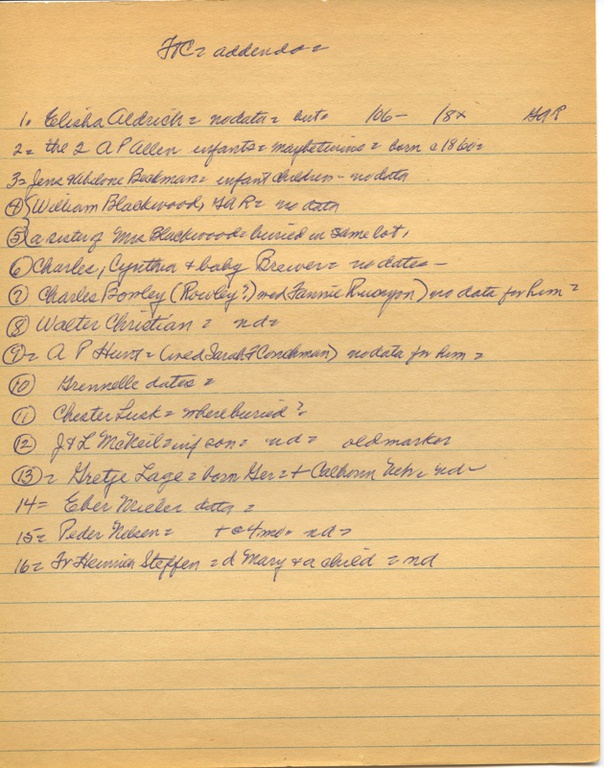 FTC = addenda =
1. Elisha Aldrich = no data = but = 106- 18x GAR
2 = the 2 A P Allen infants = maybe twins = born c 1860 =
3 = Jens & Abelone Beekman = infant children - no data
④ William Blackwood, GAR = no data
⑤ a sister of Mrs Blackwood = buried in same lot,
⑥ Charles, Cynthia & baby Brewer = no dates -
⑦ Charles Bowley (Rowley?) wed Fannie Runyon) no data for him =
⑧ Walter Christian = nd =
⑨ = A P Hunt = (wed Sarah F Conchman) no data for him =
⑩ Grennelle dates =
⑪ Chester Lusk = where buried?
⑫ J & L McNeil = inf son = nd = old marker
⑬ = Gretje Lage = born Ger = + Calhoun Neb = nd -
14 = Eber Mieler data =
15 = Peder Nelsen = + @ 4 mo = nd =
16 = Fr Heinrich Steffen = d Mary & a child = nd